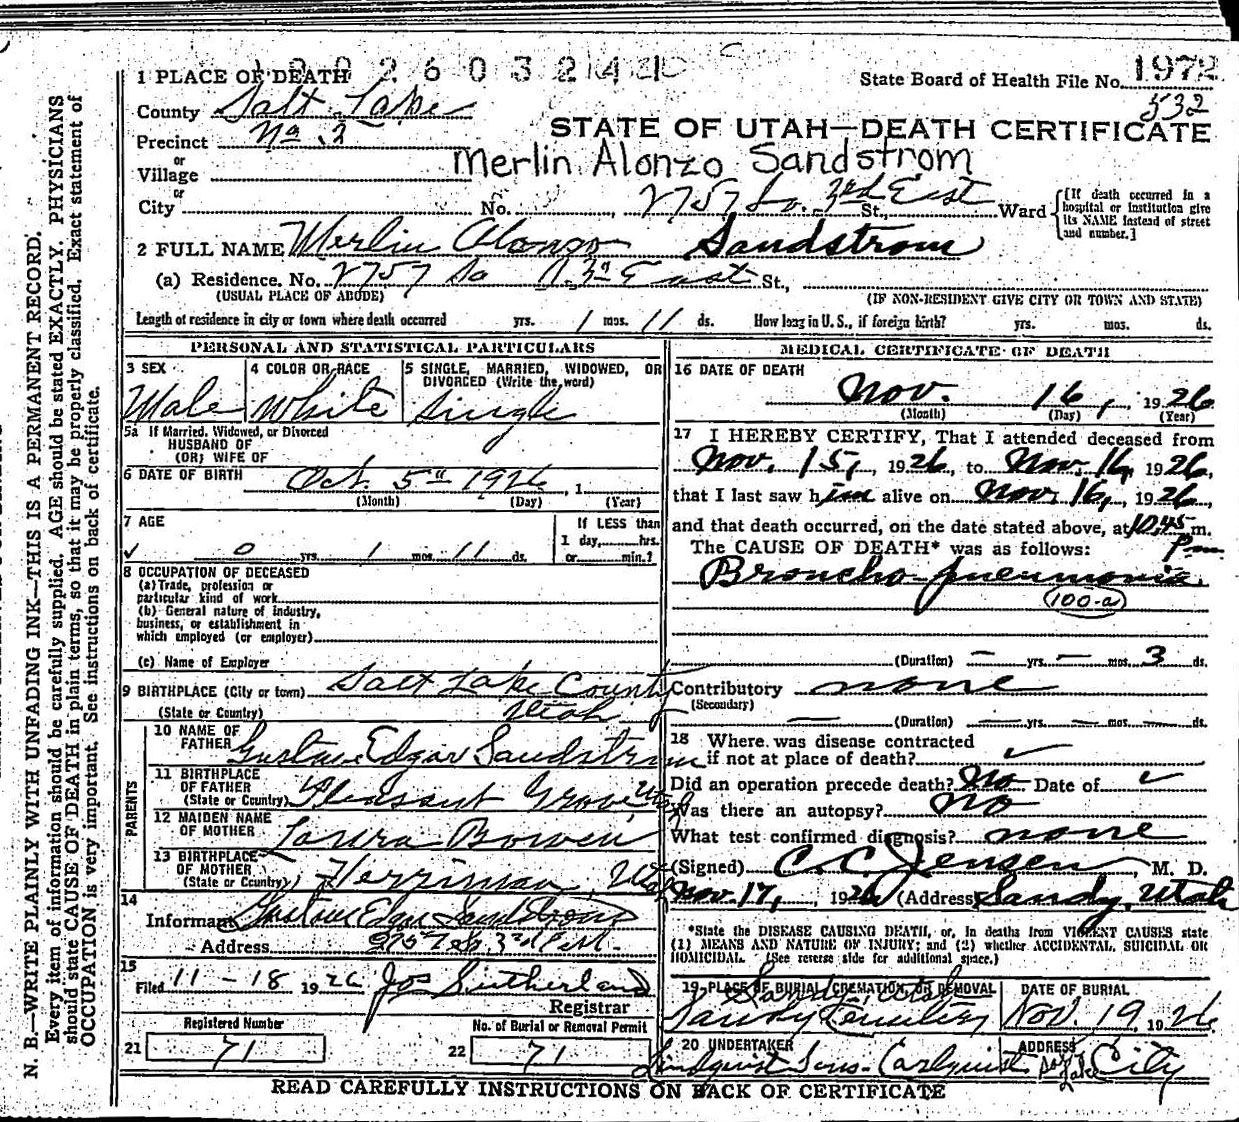 1 PLACE OF DEATH
State Board of Health File No. 1972
County Salt Lake
532
Precinct No. 2
STATE OF UTAH—DEATH CERTIFICATE
or
Merlin Alonzo Sandstrom
Village
or
City No. 2757 So. 3rd East St., Ward
[If death occurred in a hospital or institution give its NAME instead of street and number.]
2 FULL NAME Merlin Alonzo Sandstrom
(a) Residence. No. 2757 So 3rd East St.,
(USUAL PLACE OF ABODE) (IF NON-RESIDENT GIVE CITY OR TOWN AND STATE)
Length of residence in city or town where death occurred yrs. 1 mos. 11 ds. How long in U. S., if foreign birth? yrs. mos. ds.
PERSONAL AND STATISTICAL PARTICULARS
3 SEX
Male
4 COLOR OR RACE
White
5 SINGLE, MARRIED, WIDOWED, OR
DIVORCED (Write the word)
Single
5a If Married, Widowed, or Divorced
HUSBAND OF
(OR) WIFE OF
6 DATE OF BIRTH Oct. 5th 1926, 1
(Month) (Day) (Year)
7 AGE
0 yrs. 1 mos. 11 ds.
If LESS than
1 day, hrs.
or min.?
8 OCCUPATION OF DECEASED
(a) Trade, profession or
particular kind of work
(b) General nature of industry,
business, or establishment in
which employed (or employer)
(c) Name of Employer
9 BIRTHPLACE (City or town) Salt Lake County
(State or Country) Utah
PARENTS
10 NAME OF
FATHER Gustave Edgar Sandstrom
11 BIRTHPLACE
OF FATHER
(State or Country) Pleasant Grove Utah
12 MAIDEN NAME
OF MOTHER Laura Bowen
13 BIRTHPLACE
OF MOTHER
(State or Country) Herriman, Utah
14
Informant Gustave Edgar Sandstrom
Address
15
Filed 11-18 1926 Jos Sutherland
Registrar
Registered Number
21 71
No. of Burial or Removal Permit
22 71
MEDICAL CERTIFICATE OF DEATH
16 DATE OF DEATH
Nov. 16, 1926
(Month) (Day) (Year)
17 I HEREBY CERTIFY, That I attended deceased from
Nov. 15, 1926, to Nov. 16, 1926,
that I last saw him alive on Nov. 16, 1926,
and that death occurred, on the date stated above, at 10.45 m.
The CAUSE OF DEATH* was as follows: P.m.
Broncho-pneumonia.
100-a
(Duration) — yrs. — mos. 3 ds.
Contributory none
(Secondary)
— (Duration) — yrs. — mos. — ds.
18 Where was disease contracted
if not at place of death?
Did an operation precede death? No Date of
Was there an autopsy? no
What test confirmed diagnosis? none
(Signed) C. C. Jensen, M. D.
Nov. 17, 1926 (Address) Sandy, Utah
*State the DISEASE CAUSING DEATH, or, in deaths from VIOLENT CAUSES state
(1) MEANS AND NATURE OF INJURY; and (2) whether ACCIDENTAL, SUICIDAL OR
HOMICIDAL. (See reverse side for additional space.)
19 PLACE OF BURIAL, CREMATION, OR REMOVAL
Sandy, Utah
Sandy Cemetery
DATE OF BURIAL
Nov. 19 1926
20 UNDERTAKER
Lindquist Sons-Carlquist
ADDRESS
Salt Lake City
READ CAREFULLY INSTRUCTIONS ON BACK OF CERTIFICATE
N. B.—WRITE PLAINLY WITH UNFADING INK—THIS IS A PERMANENT RECORD.
Every item of information should be carefully supplied. AGE should be stated EXACTLY. PHYSICIANS
should state CAUSE OF DEATH in plain terms, so that it may be properly classified. Exact statement of
OCCUPATION is very important. See instructions on back of certificate.